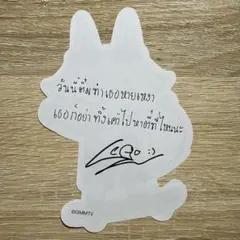 วันนี้ ทำเธอหายเหงา
เธอก็อย่าทิ้งเค้าไปหา ที่ไหนนะ
:)
©GMMTV